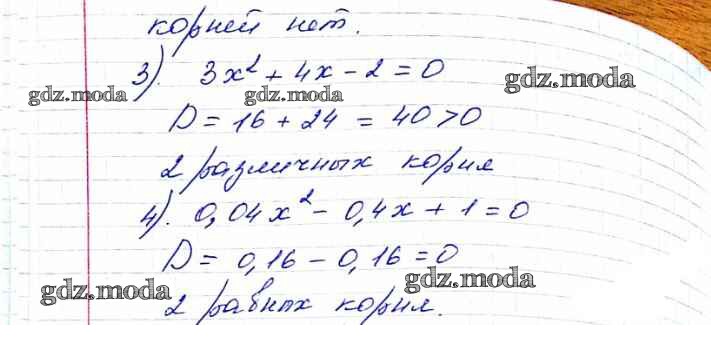 корней нет.
3). 3x² + 4x − 2 = 0
gdz.moda gdz.moda gdz.moda
D = 16 + 24 = 40 > 0
2 различных корня
4). 0,04x² − 0,4x + 1 = 0
D = 0,16 − 0,16 = 0
gdz.moda gdz.moda
2 равных корня.